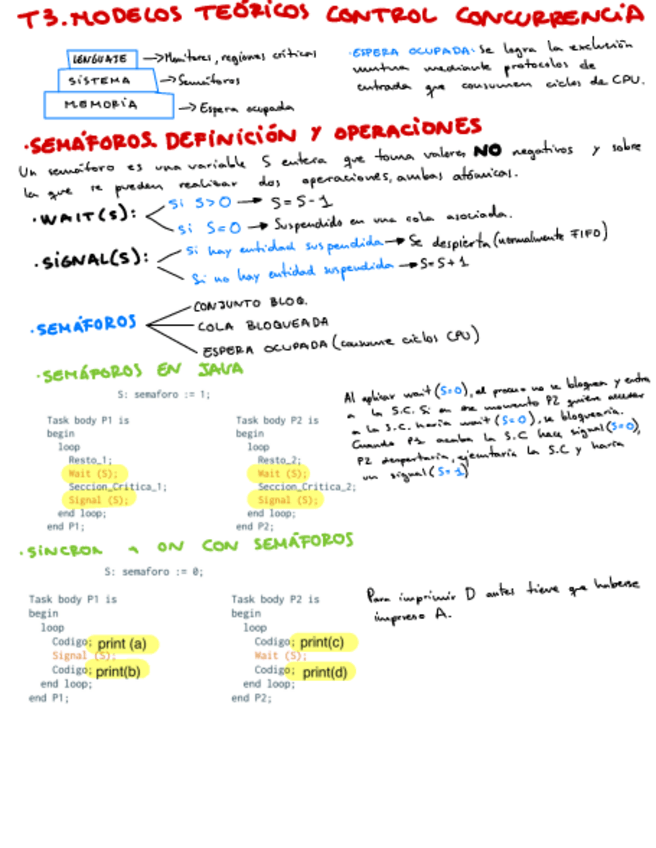 T3. MODELOS TEÓRICOS CONTROL CONCURRENCIA
LENGUAJE → Monitores, regiones críticas
SISTEMA → Semáforos
MEMORIA → Espera ocupada
·ESPERA OCUPADA: Se logra la exclusión
mutua mediante protocolos de
entrada que consumen ciclos de CPU.
·SEMÁFOROS. DEFINICIÓN Y OPERACIONES
Un semáforo es una variable S entera que toma valores NO negativos y sobre
la que se pueden realizar dos operaciones, ambas atómicas.
·WAIT(S):
Si S>0 → S=S-1
Si S=0 → Suspendido en una cola asociada.
·SIGNAL(S):
Si hay entidad suspendida → Se despierta (normalmente FIFO)
Si no hay entidad suspendida → S=S+1
·SEMÁFOROS
CONJUNTO BLOQ.
COLA BLOQUEADA
ESPERA OCUPADA (consume ciclos CPU)
·SEMÁFOROS EN JAVA
S: semaforo := 1;
Task body P1 is
begin
loop
Resto_1;
Wait (S);
Seccion_Critica_1;
Signal (S);
end loop;
end P1;
Task body P2 is
begin
loop
Resto_2;
Wait (S);
Seccion_Critica_2;
Signal (S);
end loop;
end P2;
Al aplicar wait (S=0), el proceso no se bloquea y entra
a la S.C. Si en ese momento P2 quiere acceder
a la S.C. haría wait (S=0), se bloquearía.
Cuando P1 acaba la S.C hace signal (S=0),
P2 despertaría, ejecutaría la S.C y haría
un signal (S=1)
·SINCRON ON CON SEMÁFOROS
S: semaforo := 0;
Task body P1 is
begin
loop
Codigo; print (a)
Signal (S);
Codigo; print(b)
end loop;
end P1;
Task body P2 is
begin
loop
Codigo; print(c)
Wait (S);
Codigo; print(d)
end loop;
end P2;
Para imprimir D antes tiene que haberse
impreso A.